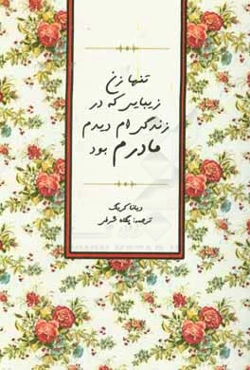 تنها زن
زیبایی که در
زندگی‌ام دیدم
مادرم بود
دیانا کرینگ
ترجمه: پگاه فرهنگ